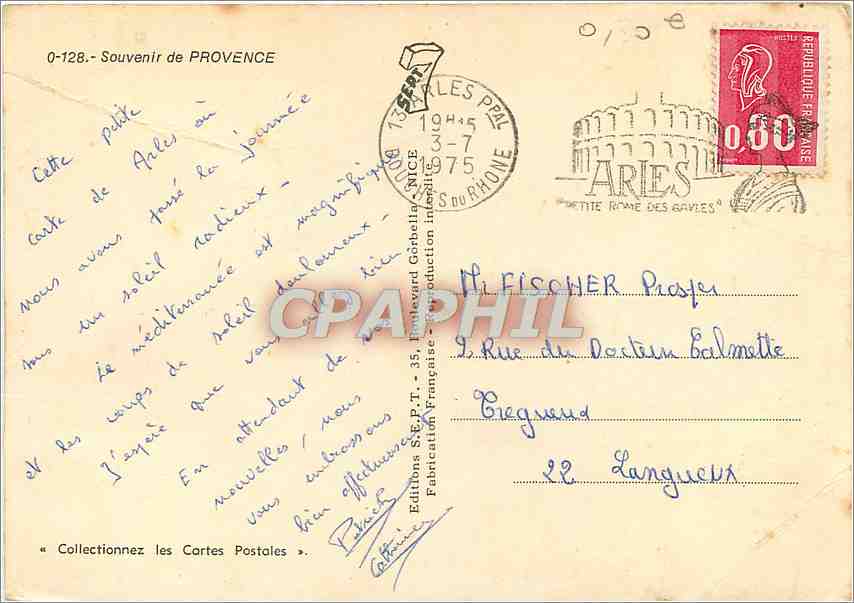 0-128.- Souvenir de PROVENCE
Cette petite
carte de Arles où
nous avons passé la journée
sous un soleil radieux -
La méditerranée est magnifique
et les coups de soleil douloureux -
J'espère que vous allez bien.
En attendant de vos
nouvelles, nous
vous embrassons
bien affectueusement
Patrick
Catherine
« Collectionnez les Cartes Postales ».
SEPT
Editions S.E.P.T. - 35, Boulevard Gorbella - NICE
Fabrication Française - Reproduction interdite
13 ARLES PPAL
19H15
3-7
1975
BOUCHES DU RHONE
ARLES
"PETITE ROME DES GAULES"
POSTES
REPUBLIQUE FRANÇAISE
0,80
Mr FISCHER Prosper
9, Rue du Docteur Calmette
Tregueux
22 Langueux
CPAPHIL